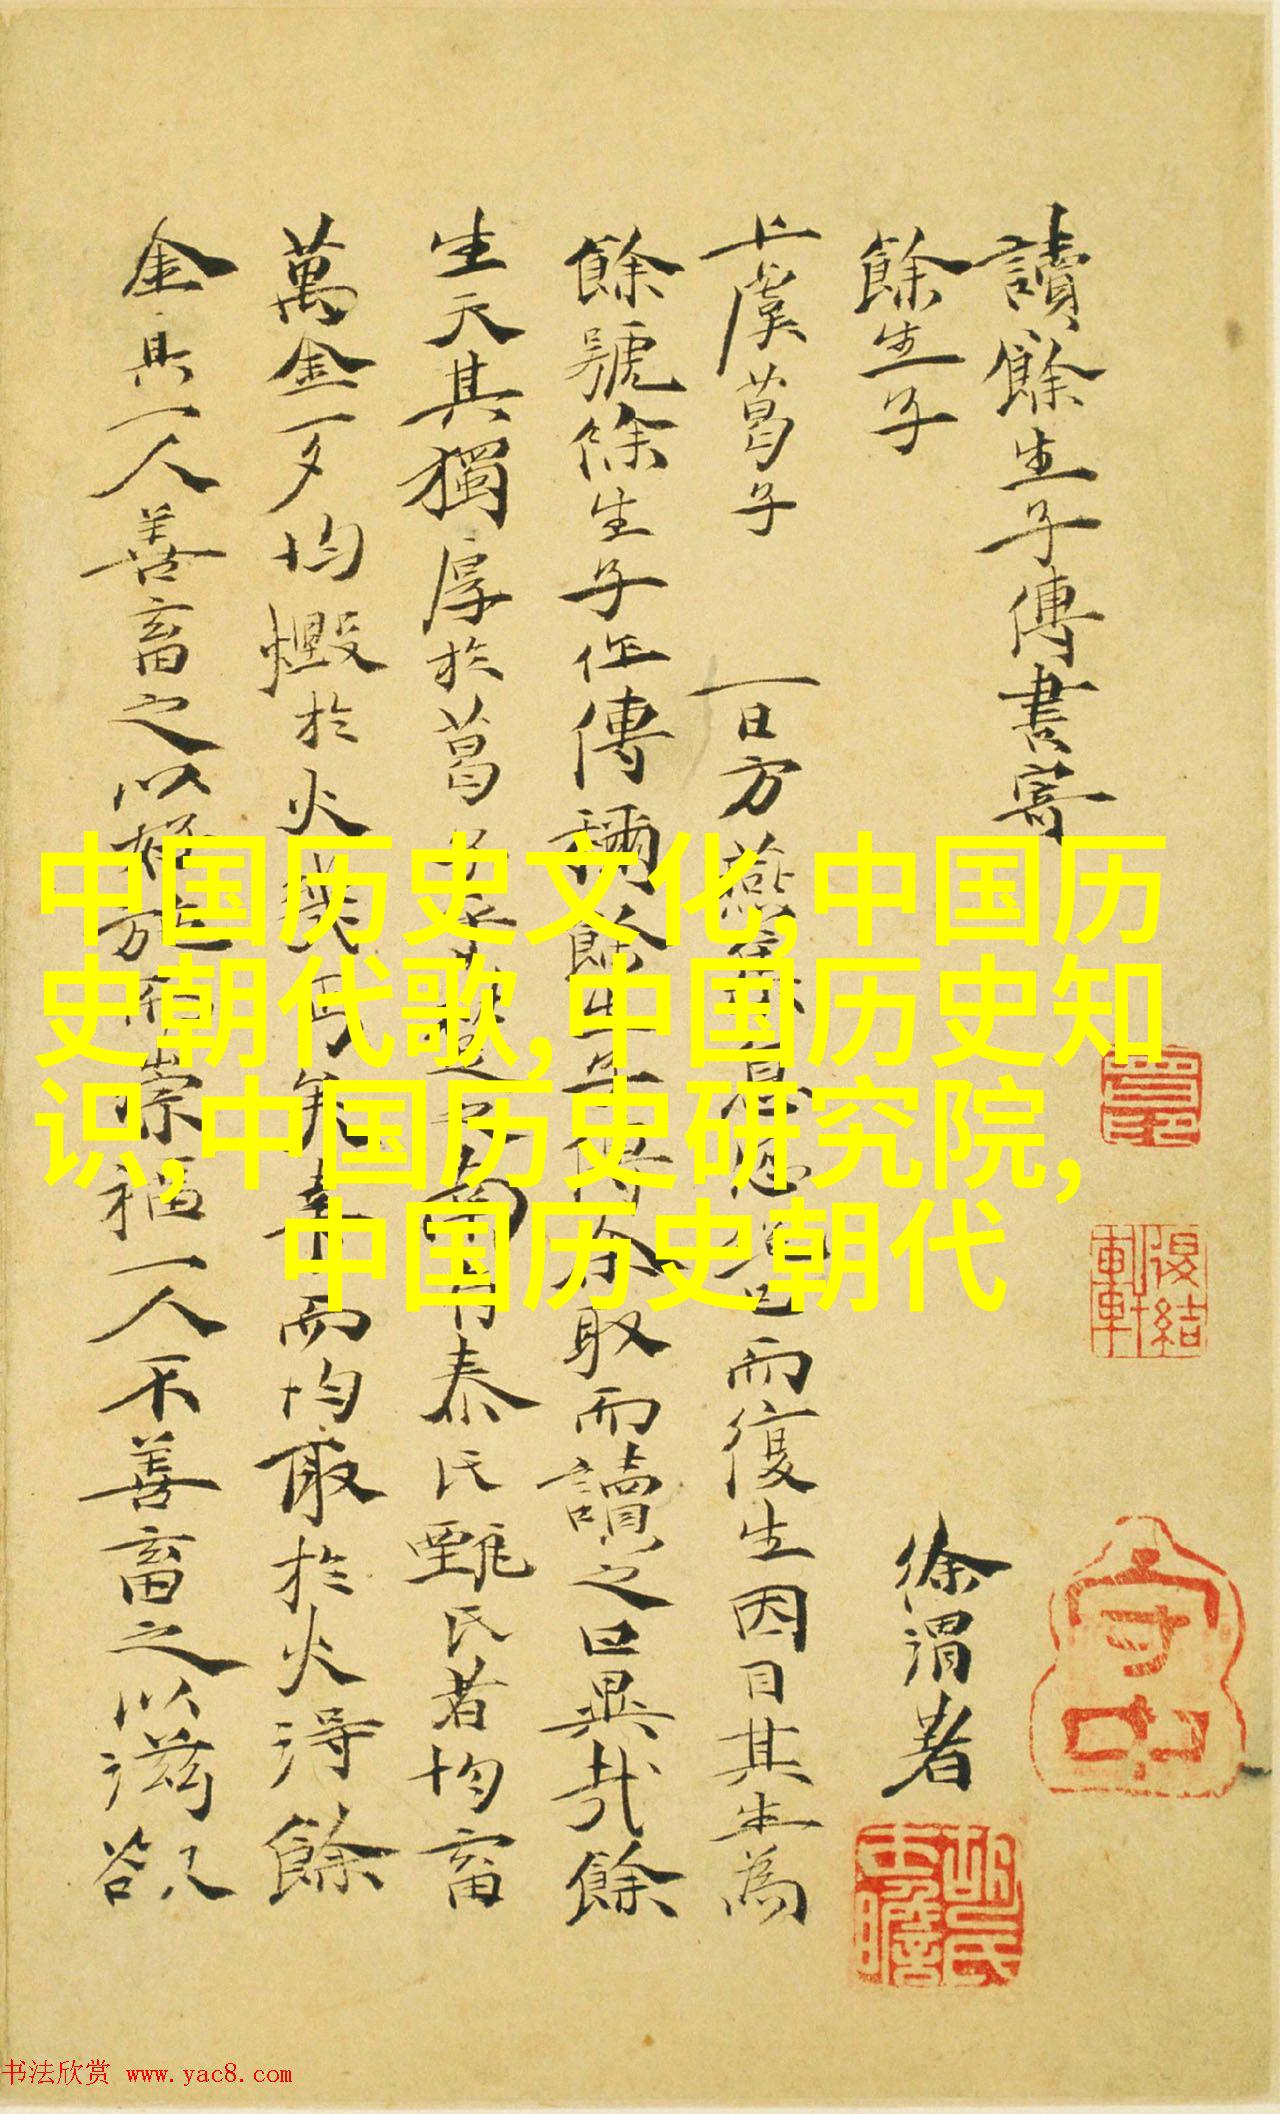 讀餘生子傳書寄
餘生子
徐渭著
上虞葛子 一日方燕 而復生因目其生為
餘號餘生子任傳稱餘生子 取而讀之曰異哉餘
生天其獨厚於葛 泰氏甄氏者均畜
萬金一夕均燬於火 矣 而均取於火得餘
金具一人善畜之以好施而崇福一人不善畜之以滋欲
中国历史文化,中国历
史朝代歌,中国历史知
识,中国历史研究院,
中国历史朝代
书法欣赏 www.yac8.com